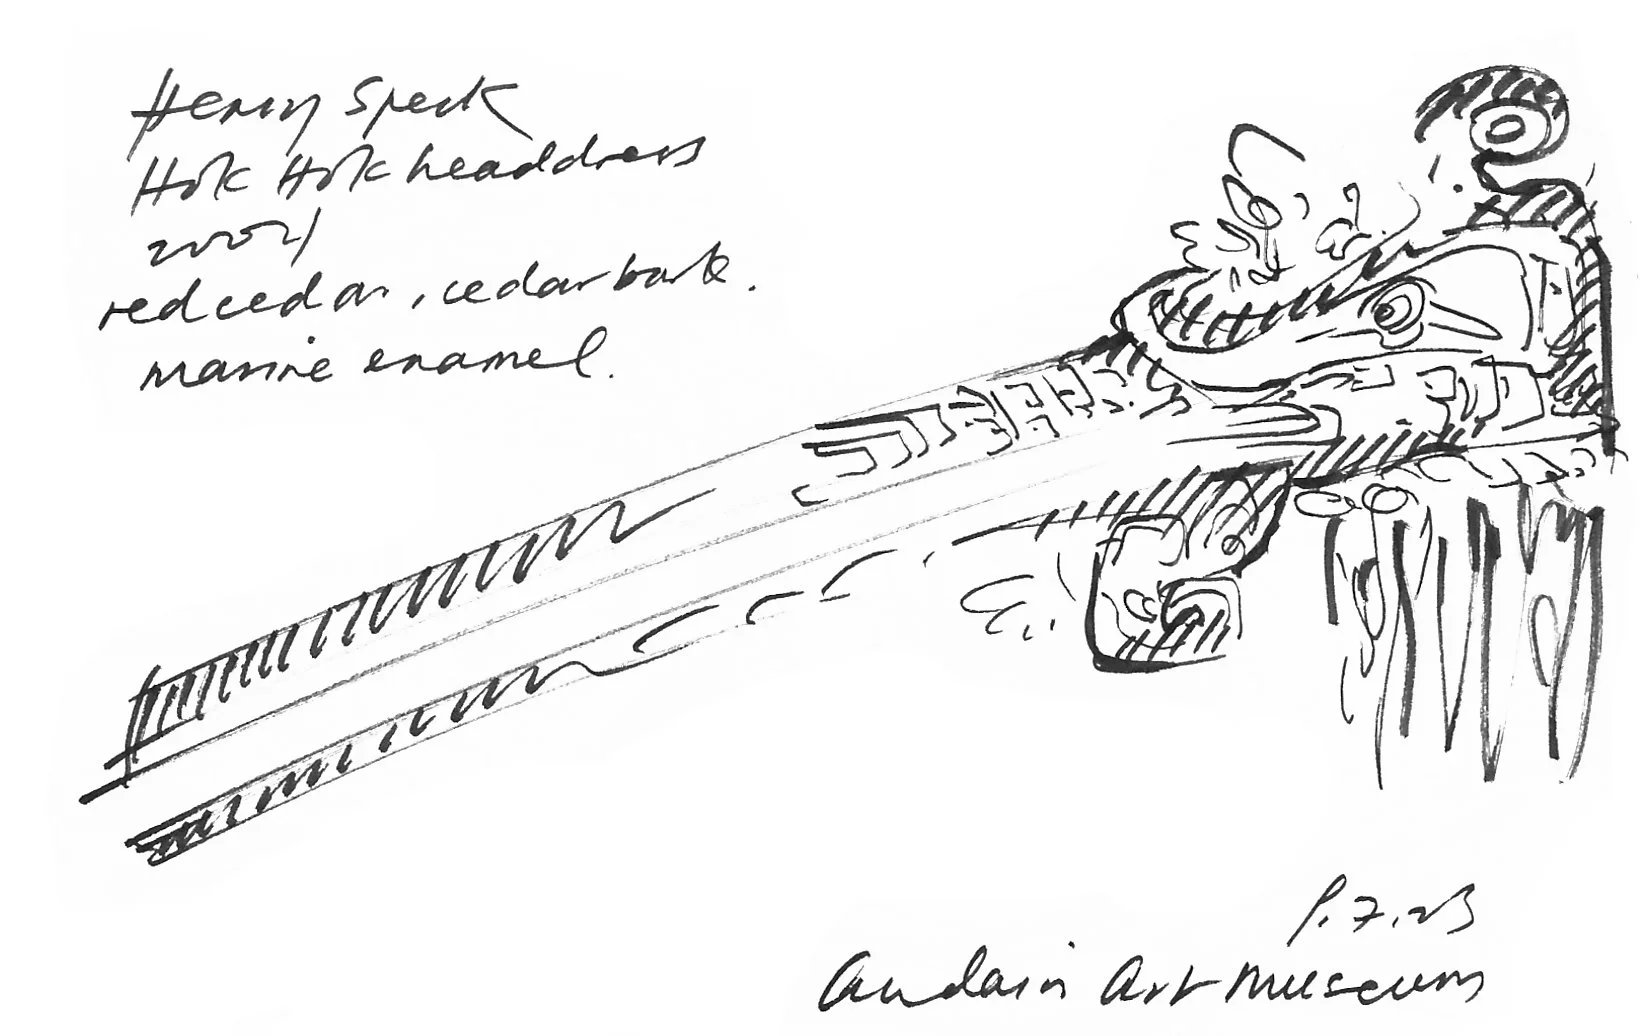 Henry Speck
Hok Hok headdress
2004
red cedar, cedar bark.
marine enamel.
7.23
Audain Art Museum